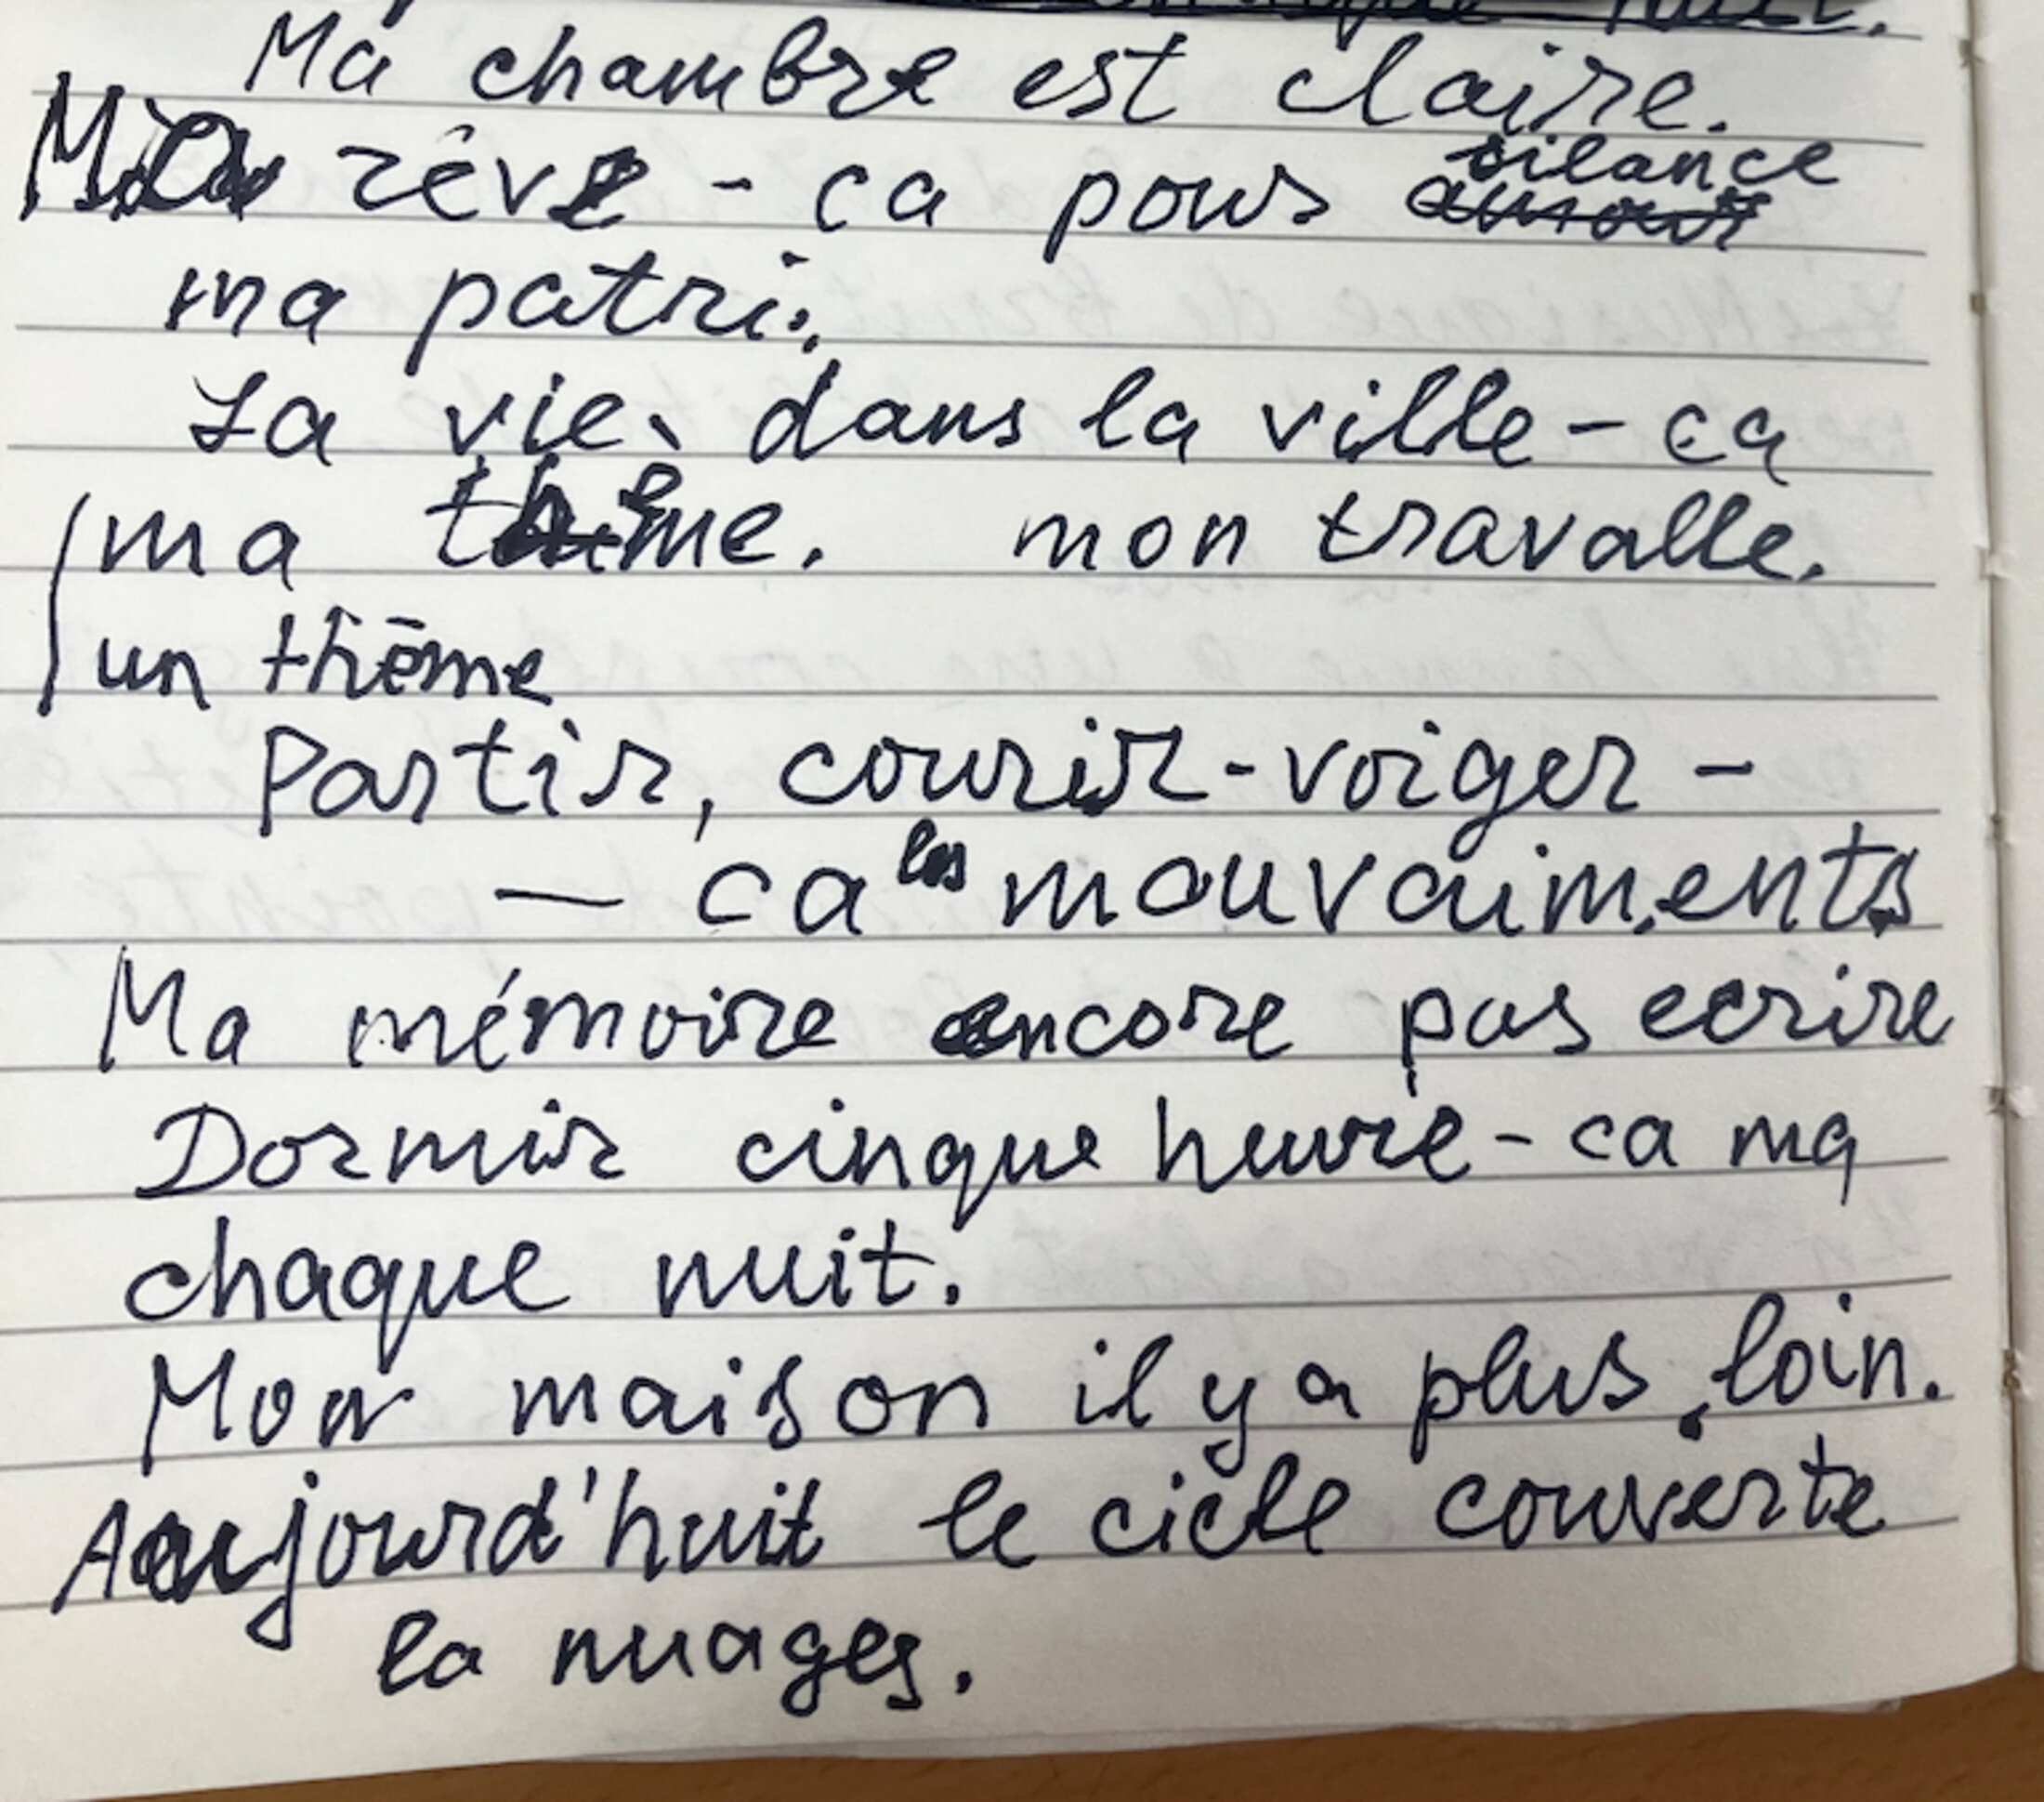 nuit.
Ma chambre est claire.
Mon rêve - ca pour silance
amour
ma patri.
La vie dans la ville - ca
ma thème. mon travalle.
un thème
Partir, courir - voiger -
— ca les mouvaiments
Ma mémoire encore pas ecrire
Dormir cinque heure - ca ma
chaque nuit.
Mon maison il y a plus loin.
Aujourd'huit le ciele couverte
la nuages.